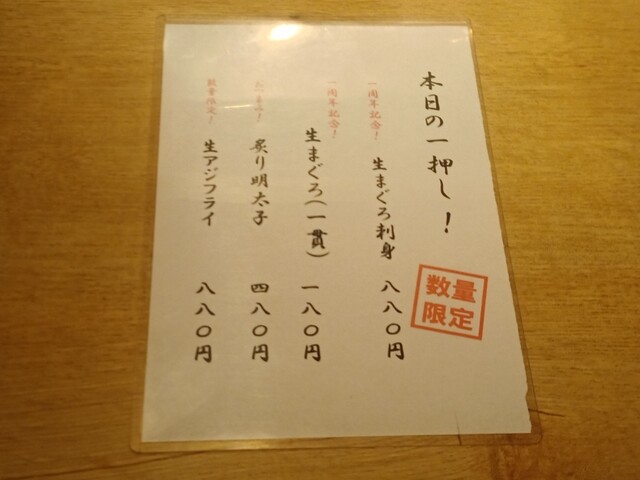 本日の一押し！
数量
限定
一周年記念！
生まぐろ刺身 八八〇円
一周年記念！
生まぐろ（一貫） 一八〇円
炙り明太子 四八〇円
数量限定！
生アジフライ 八八〇円